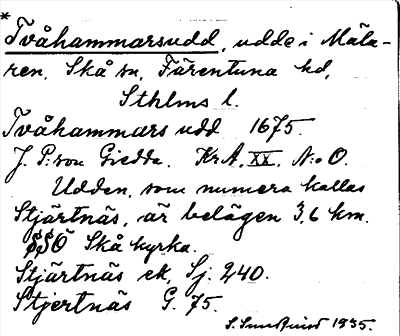 *
Tvåhammarsudd, udde i Mäla-
ren, Skå sn, Färentuna hd,
Sthlms l.
Tvåhammars udd 1675.
J. P:son Giedda. KrA, XX, N:o O.
Udden, som numera kallas
Stjärtnäs, är belägen 3,6 km.
SSÖ Skå kyrka.
Stjärtnäs ek. Sj. 240.
Stjertnäs G. 75.
S. Sundquist 1935.